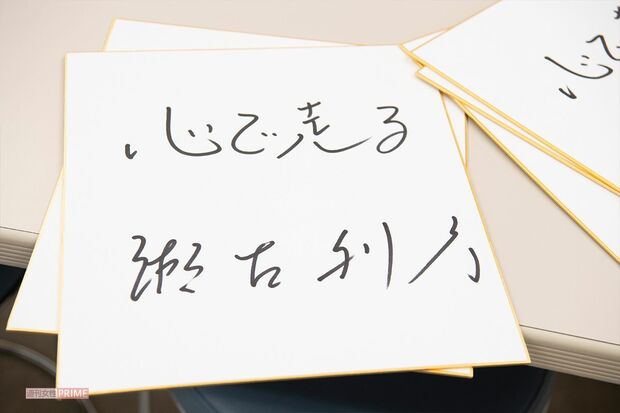 心で走る
瀬古利彦
心で
週刊女性PRIME